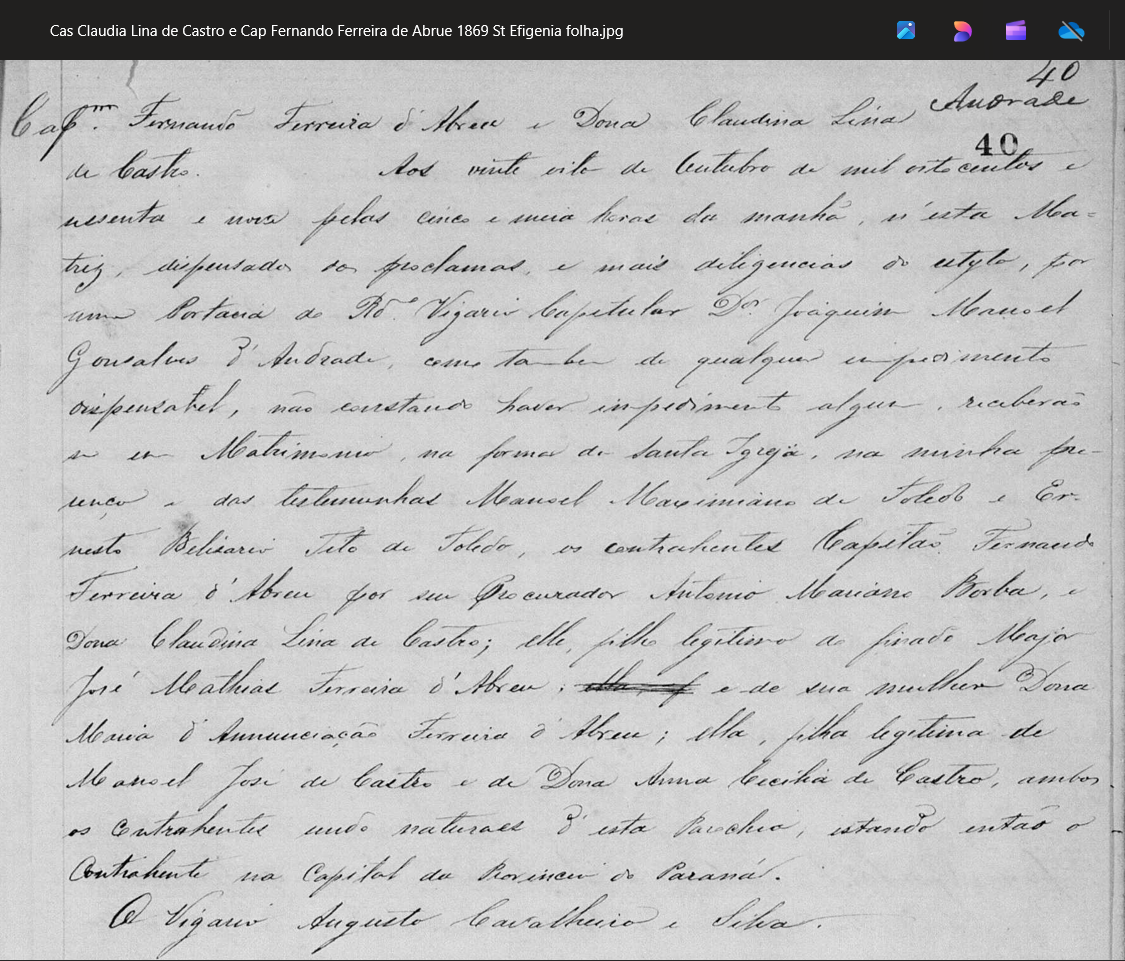 Cas Claudia Lina de Castro e Cap Fernando Ferreira de Abrue 1869 St Efigenia folha.jpg
40
Andrade
40
Cap.m Fernando Ferreira d'Abreu e Dona Claudina Lina
de Castro. Aos vinte oito de Outubro de mil oitocentos e
sessenta e nove pelas cinco e meia horas da manhã, n'esta Ma-
triz, dispensados os proclamas, e mais diligencias do estylo, por
uma Portaria do Rd.o Vigario Capitular Dor Joaquim Manoel
Gonsalves d'Andrade, como tambem de qualquer impedimento
dispensavel, não constando haver impedimento algum, receberão
se em Matrimonio, na forma da Santa Igreja, na minha pre-
sença e das testemunhas Manoel Maximiano de Toledo e Er-
nesto Belisario Tito de Toledo, os contrahentes Capitão Fernando
Ferreira d'Abreu por seu Procurador Antonio Mariano Borba, e
Dona Claudina Lina de Castro; elle, filho legitimo do finado Major
José Mathias Ferreira d'Abreu, e de sua mulher Dona
Maria d'Annunciação Ferreira d'Abreu; ella, filha legitima de
Manoel José de Castro e de Dona Anna Cecilia de Castro, ambos
os Contrahentes sendo naturaes d'esta Parochia, estando então o
Contrahente na Capital da Provincia do Paraná.
O Vigario Augusto Cavalheiro e Silva.